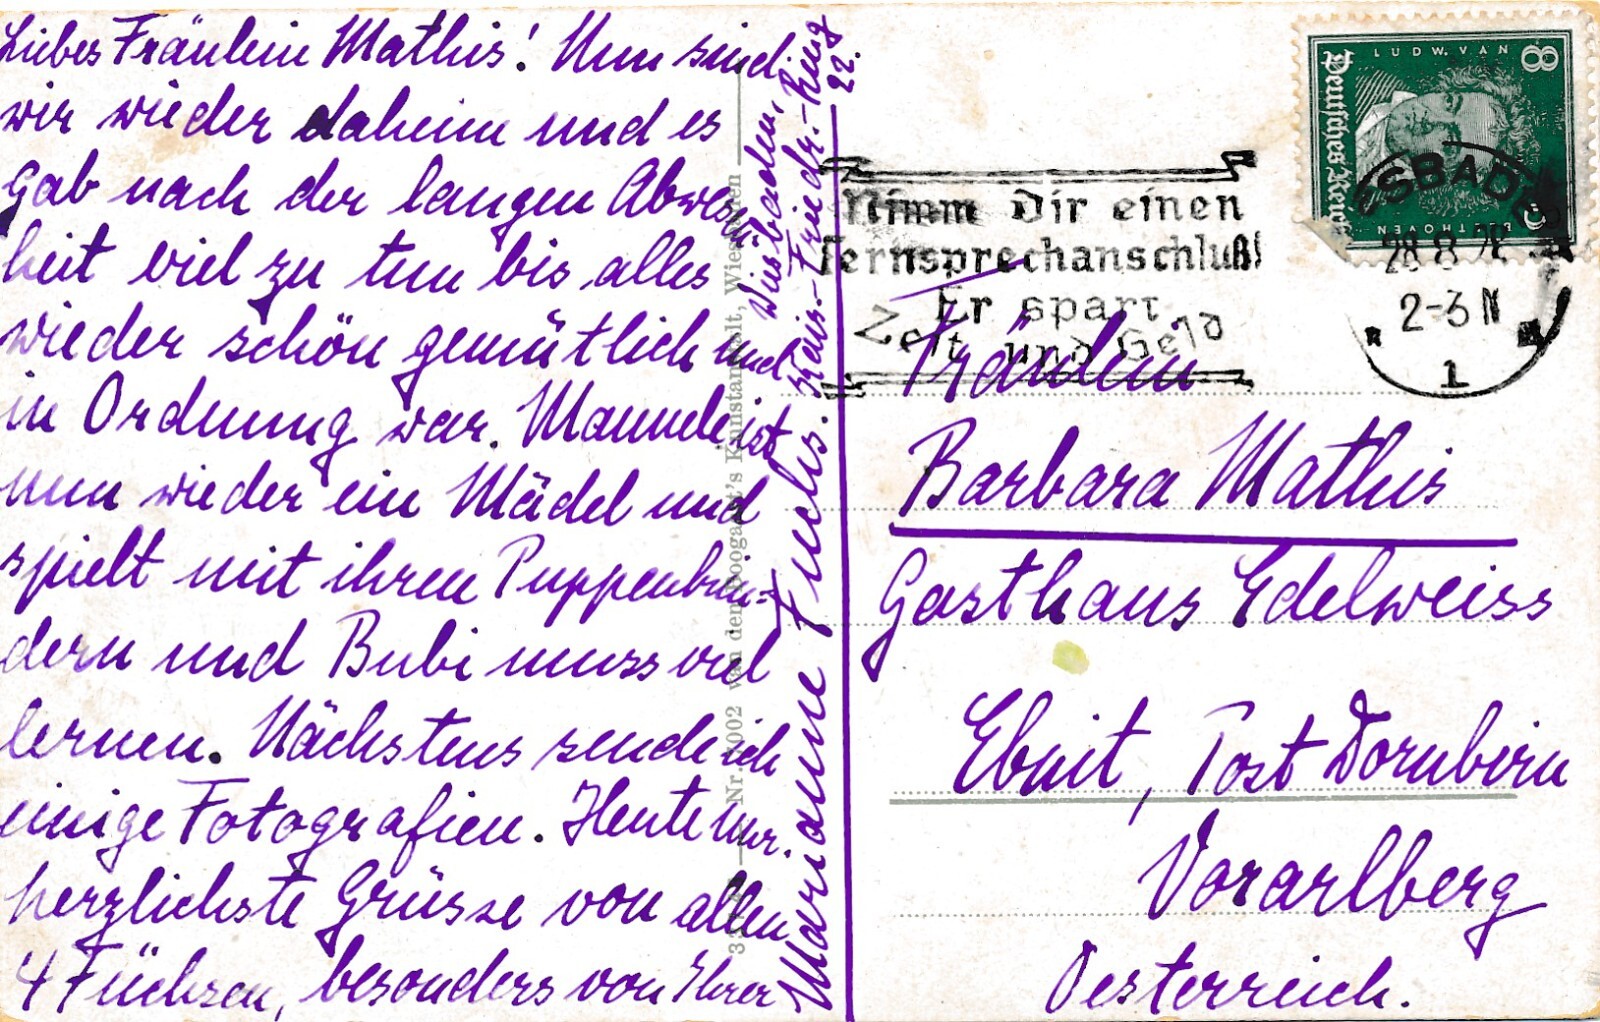 Liebes Fräulein Mathis! Nun sind
wir wieder daheim und es
gab nach der langen Abwesen
heit viel zu tun bis alles
wieder schön gemütlich und
in Ordnung war. Mannele ist
nun wieder ein Mädel und
spielt mit ihren Puppenkin=
dern und Bubi muss viel
lernen. Nächstens sende ich
einige Fotografien. Heute nur
herzlichste Grüsse von allen
4 Füchsen, besonders von Ihrer
Marianne Fuchs.
Wiesbaden,
Kais.-Friedr.-Ring
22.
van den Boogaart's Kunstanstalt, Wiesbaden
LUDW. VAN
BEETHOVEN
Deutsches Reich
8
8
Nimm Dir einen
Fernsprechanschluß!
Er spart
Zeit und Geld
28.8.28
2-3 N
1
Fräulein
Barbara Mathis
Gasthaus Edelweiss
Ebnit, Post Dornbirn
Vorarlberg
Oesterreich.